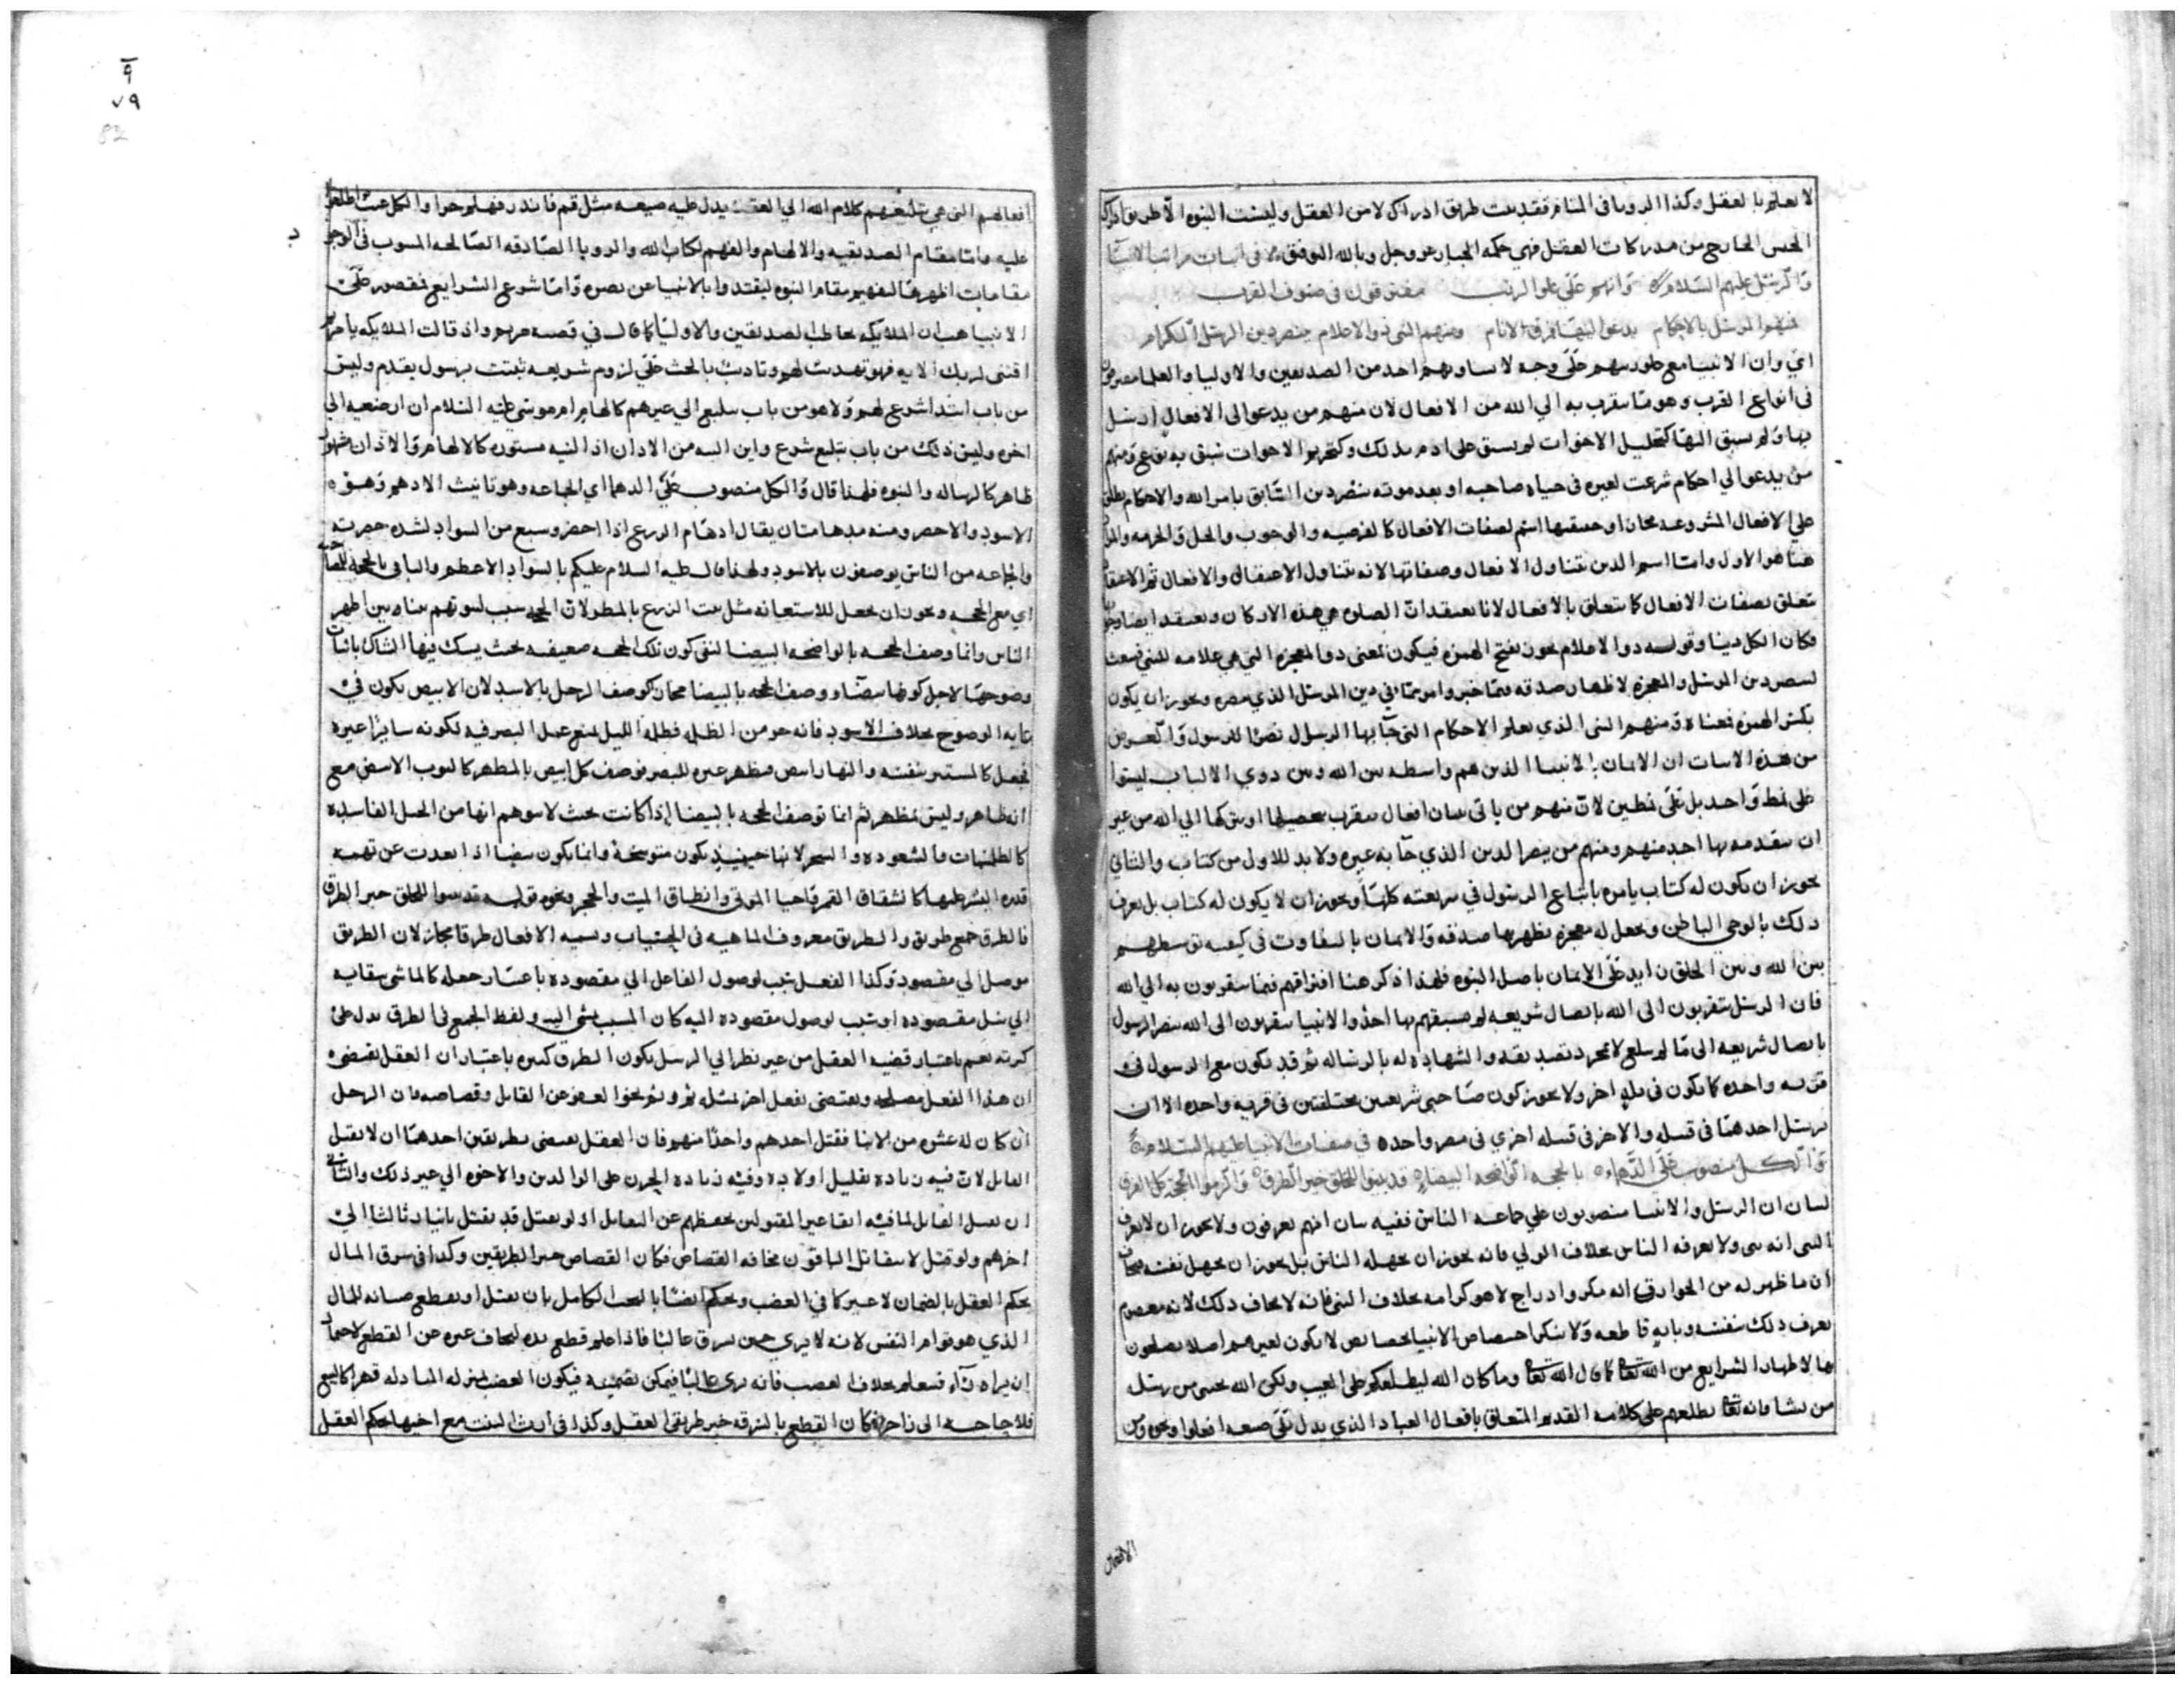 لا يعلم بالعقل وكذا الرويا في المنام فقد ثبت طريق ادراك لا من العقل وليست النبوة الا طريق ادراك
الجنس الخارج من مدركات العقل فهي حكمة الجبار عز وجل وبالله التوفيق في اثبات مراتب الانبيا
والرسل عليهم السلام وانهم على علو الرتب مفترقون في صنوف القرب
فمنهم المرسل بالاحكام يدعو اليها فرق الانام ومنهم النبي ذو الاعلام ينصر دين الرسل الكرام
اي وان الانبيا مع علو رتبهم على وجه لا يساويهم احد من الصديقين والاوليا والعلما مفترقون
في انواع القرب وهو ما يتقرب به الي الله من الافعال لان منهم من يدعو الى الافعال ارسل
بها ولم يسبق اليها كتحليل الاخوات لم يسبق على ادم بذلك وكتحريم الاخوات سبق به نوح ومنهم
من يدعو الي احكام شرعت لغيره في حياة صاحبه او بعد موته ينصر دين السابق بامر الله والاحكام يطلق
علي الافعال المشروعة مجازا وحقيقتها اسم لصفات الافعال كالفرضية والوجوب والحل والحرمة والمراد
هنا هو الاول واما اسم الدين يتناول الافعال وصفاتها لانه يتناول الاعتقاد والافعال ثم الاعتقاد
يتعلق بصفات الافعال كما يتعلق بالافعال لانا نعتقد ان الصلوة هي هذه الاركان ونعتقد ايضا وجوبها
فكان الكل دينا وقوله ذو الاعلام يجوز بفتح الهمزة فيكون المعنى ذو المعجزة التي هي علامة للنبي فبعث
لينصر دين المرسل والمعجزة لاظهار صدقه فيما اخبر وامر بما في دين المرسل الذي ينصره ويجوز ان يكون
بكسر الهمزة فمعناه ومنهم النبي الذي يعلم الاحكام التي جا بها الرسول نصرا للرسول والغرض
من هذه الابيات ان الايمان بالانبيا الذين هم واسطة بين الله وبين ذوي الالباب ليسوا
على نمط واحد بل على نمطين لان منهم من ياتي ببيان افعال يتقرب بتحصيلها او بتركها الي الله من غير
ان يتقدمه بها احد منهم ومنهم من ينصر الدين الذي جا به غيره ولا بد للاول من كتاب والثاني
يجوز ان يكون له كتاب يامره باتباع الرسول في شريعته كلها ويجوز ان لا يكون له كتاب بل يعرف
ذلك بالوحي الباطن ويجعل له معجزة يظهر بها صدقه والايمان بالتفاوت في كيفية توسطهم
بين الله وبين الخلق زايد على الايمان باصل النبوة فلهذا ذكر هنا افتراقهم فيما يتقربون به الي الله
فان الرسل يتقربون الى الله بايصال شريعة لم يسبقهم بها احد والانبيا يتقربون الى الله بنصر الرسول
بايصال شريعة الى ما لم يبلغ لا بمجرد تصديقه والشهادة له بالرسالة ثم قد يكون مع الرسول في
قرية واحدة كما يكون في بلد اخر ولا يجوز كون صاحبي شريعتين مختلفتين في قرية واحدة الا ان
يرسل احدهما في قبيلة والاخر في قبيلة اخري في مصر واحدة في صفات الانبيا عليهم السلام
والكل منصوب على الدهماء بالحجة الواضحة البيضاء قد بينوا للخلق خير الطرق
لبيان ان الرسل والانبيا منصوبون علي جماعة الناس ففيه بيان انهم يعرفون ولا يجوز ان لا يعرف
النبي انه نبي ولا يعرفه الناس بخلاف الولي فانه يجوز ان يجهله الناس بل يجوز ان يجهل نفسه
ان ما ظهر له من الخوارق انه مكر وادراج لا هو كرامة بخلاف النبي فانه لا يخاف ذلك لانه معصوم
يعرف ذلك بنفسه وباية قاطعة ولا ينكر اختصاص الانبيا بخصايص لا يكون لغيرهم اصلا يصلحون
بها لاظهار الشرايع من الله تعا كما قال الله تعا وما كان الله ليطلعكم على الغيب ولكن الله يجتبي من رسله
من يشا فانه تعا يطلعهم على كلامه القديم المتعلق بافعال العباد الذي يدل على صيغة افعلوا ونحوه
الافعال
٩
٧٩
82
افعالهم التي هي تبليغهم كلام الله الي العقلا يدل عليه صيغة مثل قم فانذر
عليه واما مقام الصديقية والالهام والفهم لكتاب الله والرويا الصادقة الصالحة
مقامات اظهرها لفهم مقام النبوة ليقتدوا بالانبيا عن بصيرة واما شرع الشرايع فمقصور على
الانبيا هب ان الملايكة تخاطب الصديقين والاوليا كما قال في قصة مريم واذ قالت الملايكة يا مريم
اقنتي لربك الاية فهو تهديب لهم وتاديب بالحث علي لزوم شريعة ثبتت برسول يقدم وليس
من باب ابتدا شرع لهم ولا هو من باب تبليغ الي غيرهم كالهام ام موسى عليه السلام ان ارضعيه الي
اخره وليس ذلك من باب تبليغ شرع
ظاهر كالرسالة والنبوة فلهذا قال والكل منصوب علي الدهما اي الجماعة وهو تانيث الادهم وهو
الاسود والاخضر ومنه مدهامتان يقال ادهام الزرع اذا اخضر وشبع من السواد لشدة خضرته
والجماعة من الناس يوصفون بالاسود ولهذا قال عليه السلام عليكم بالسواد الاعظم والبا في بالحجة
اي مع الحجة ويجوز ان يجعل للاستعانة
الناس وانما وصف الحجة بالواضحة البيضا لنفي كون تلك الحجة ضعيفة بحيث يشك فيها الشاك باثبات
وضوحها لاجل كونها بيضا ووصف الحجة بالبيضا مجاز كوصف الرجل بالاسد لان الابيض يكون في
غاية الوضوح بخلاف الاسود فانه هو من الظلمة فظلمة الليل تمنع عمل البصر فيه لكونه ساترا غيره
فجعل كالمستتر بنفسه والنهار ابيض فيظهر غيره للبصر فوصف كل ابيض بالمظهر كالثوب الابيض مع
انه ظاهر وليس بمظهر ثم انما توصف الحجة بالبيضا اذا كانت بحيث لا يتوهم انها من الحيل الفاسدة
كالطلسمات والشعوذة والسحر لانها حينيذ يكون متوسخة وانما يكون بيضا اذا بعدت عن تهمة
قدرة البشر عليها كانشقاق القمر واحيا الموتى وانطاق الميت والحجر ونحوه قوله قد بينوا للخلق خير الطرق
فالطرق جمع طريق والطريق معروف الماهية في الحسيات وتسمية الافعال طرقا مجاز لان الطريق
موصل الي مقصود وكذا الفعل سبب لوصول الفاعل الي مقصوده باعتبار جعله كالماشي
الي نيل مقصوده او سبب لوصول مقصوده اليه كان المسبب يمشي اليه ولفظ الجمع في الطرق يدل على
كثرته نعم باعتبار قضية العقل من غير نظر الي الرسل يكون الطرق كثيرة باعتبار ان العقل يقتضي
ان هذا الفعل مصلحة ويقتضي بفعل اخر بمثله ثم وثم نحو العفو عن القاتل وقصاصه فان الرجل
ان كان له عشرة من الابنا فقتل احدهم واحدا منهم فان العقل يقتضي بطريقين احدهما ان لا يقتل
القاتل لان فيه زيادة تقليل اولاده وفيه زيادة الحزن على الوالدين والاخوة الي غير ذلك والثاني
ان يقتل القاتل لما فيه ابقا غير المقتولين بحفظهم عن القاتل اذ لو لم يقتل قد يقتل ثانيا وثالثا الي
اخرهم ولو قتل لا يتقاتل الباقون مخافة القصاص فكان القصاص خير الطريقين وكذا في سرق المال
يحكم العقل بالضمان لا غير كما في الغصب ويحكم ايضا بالبحث الكامل بان يقتل او يقطع صيانة للمال
الذي هو قوام النفس لانه لا يري حين يسرق غالبا فاذا علم قطع يده ليخاف غيره عن القطع
ان يراه راء فيعلم بخلاف الغصب فانه يرى غالبا فيمكن تضمينه فيكون الغصب بمنزلة المبادلة قهرا كالبيع
فلا حاجة الى زاجر فكان القطع بالسرقة خير طريقي العقل وكذا في ارث البنت مع اخيها يحكم العقل